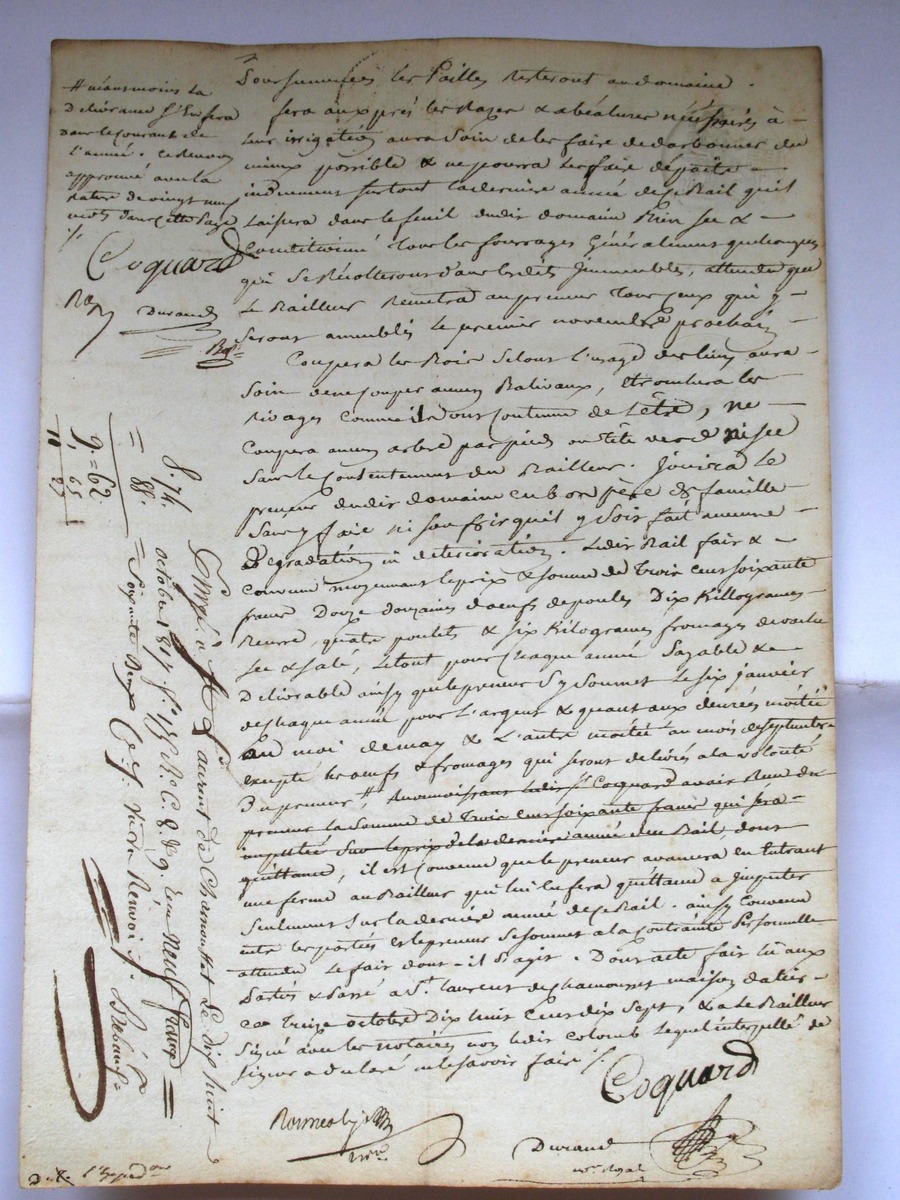 consumées les Pailles resteront au domaine.
fera aux prés les Razes & abéalures nécessaires à
leur irrigation aura Soin de les faire
mieux possible & ne pourra les faire
surtout la dernière année de ce Bail qu'il
Laissera dans le fenil dudit domaine Bien sec &
Conditionné Tous les fourrages Généralement quelconques
qui se Récolteront dans lesdits Immeubles, attendu que
le Bailleur Remettra au preneur Tous Ceux qui y
seront ammeublés le premier novembre prochain
Coupera les Bois Selont l'usage des lieux aura
Soin de ne couper aucun Balivaux, et
rivages comme il ont coutume de l'être, ne
Coupera aucun arbre par pied ou tête verd ni sec
Sans le Consentement du Bailleur. Jouira le
preneur dudit domaine en bon père de famille
Sans y faire ni souffrir qu'il y Soit fait aucune
Dégradation ni détérioration. Ledit Bail fait &
convenu moyennant le prix & somme de Trois cent soixante
francs Douze douzaines d'oeufs de poules Dix Killogrames
Beurre, quatre poulets & six Kilogrames fromages de vache
sec & salé, le tout pour Chaque année Payable &
Délivrable ainsy que le preneur S'y Soumet le six janvier
de chaque année pour l'argent & quant aux denrées moitié
au moi de may & L'autre moitié au mois de Septembre
excepté les oeufs & fromages qui seront délivrés à la volonté
Du preneur # Reconnoissant ledit Sr. Coquard avoir Reçu du
preneur la Somme de Trois cent soixante francs qui sera
imputée Sur le prix de la dernière année du Bail dont
quittance, il est convenu que le preneur avancera en Entrant
une ferme au Bailleur qui lui en fera quittance à Imputer
Seulement Sur la dernière année de ce Bail. ainsy Convenu
entre les parties et le preneur Se Soumet à la Contrainte Personnelle
attendu le fait dont il s'agit. Dont acte fait lu aux
Parties & Passé à St. Laurent de chamousset maison
ce Treize octobre Dix huit Cent dix Sept, & a le Bailleur
Signé avec les notaires non ledit Colomb Lequel interpellé de
signer a déclaré ne le savoir faire
Coquard
Durand
nre. Royal
# néanmoins la
délivrance s'en fera
dans le courant de
l'année. ce Renvoi
approuvé avec la
rature de vingt neuf
mots dans cette Page
Coquard
Durand
Enregt. à St Laurent de Chamousset Le dix huit
octobre 1817. fo. 157 Ro. C. 8 & 9. Reçu Neuf francs
Soixante Deux Ces. Sans Renvoi
8. 74.
= 88.
9. = 62.